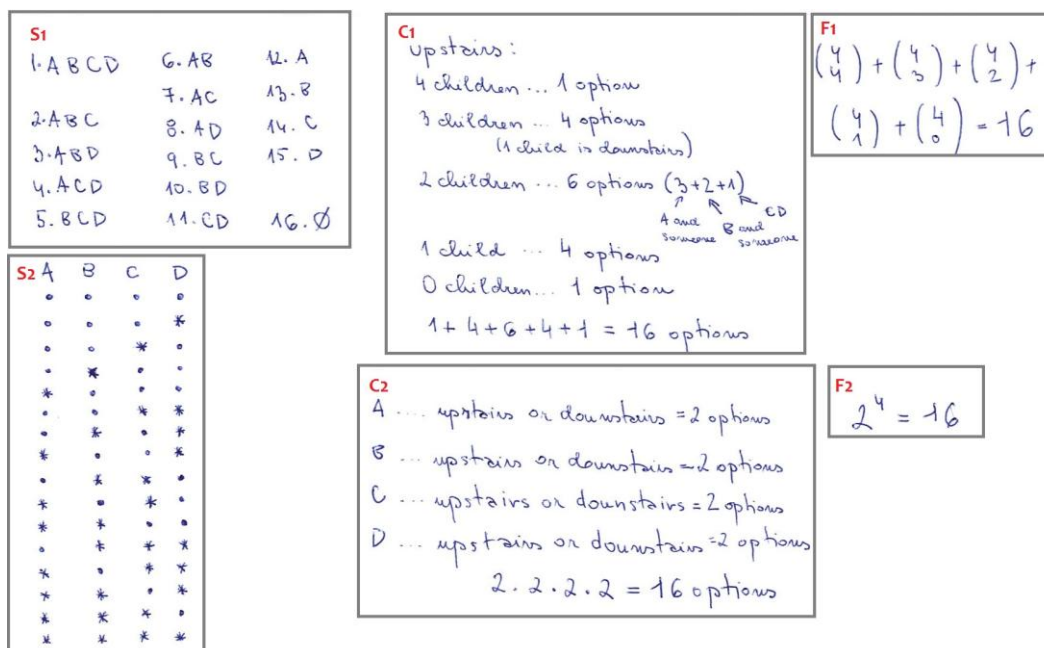 S1
1. A B C D 6. AB 12. A
7. AC 13. B
2. A B C 8. AD 14. C
3. A B D 9. BC 15. D
4. A C D 10. BD
5. B C D 11. CD 16. Ø
S2 A B C D
∘ ∘ ∘ ∘
∘ ∘ ∘ *
∘ ∘ * ∘
∘ * ∘ ∘
* ∘ ∘ ∘
∘ ∘ * *
∘ * ∘ *
* ∘ ∘ *
∘ * * ∘
* ∘ * ∘
* * ∘ ∘
∘ * * *
* ∘ * *
* * ∘ *
* * * ∘
* * * *
C1
upstairs:
4 children ... 1 option
3 children ... 4 options
(1 child is downstairs)
2 children ... 6 options (3+2+1)
A and someone B and someone CD
1 child ... 4 options
0 children ... 1 option
1 + 4 + 6 + 4 + 1 = 16 options
C2
A .... upstairs or downstairs = 2 options
B ... upstairs or downstairs = 2 options
C ... upstairs or downstairs = 2 options
D ... upstairs or downstairs = 2 options
2 . 2 . 2 . 2 = 16 options
F1
(4 4) + (4 3) + (4 2) +
(4 1) + (4 0) = 16
F2
2⁴ = 16